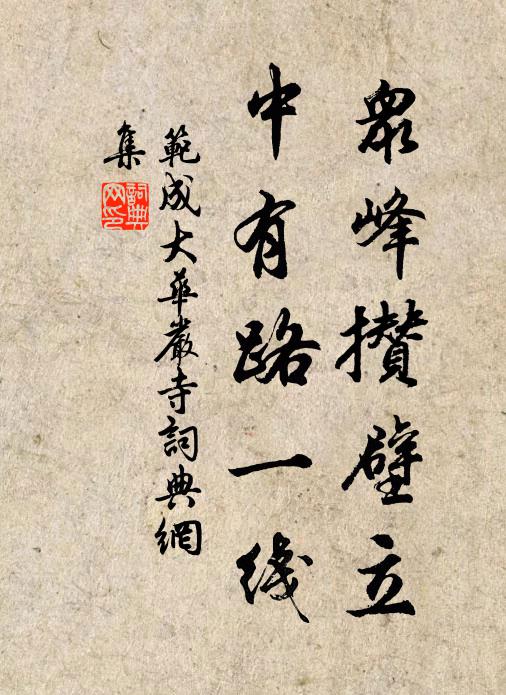 眾峰攢壁立
中有路一綫
範成大華嚴寺詞典網
集
詞典
网印